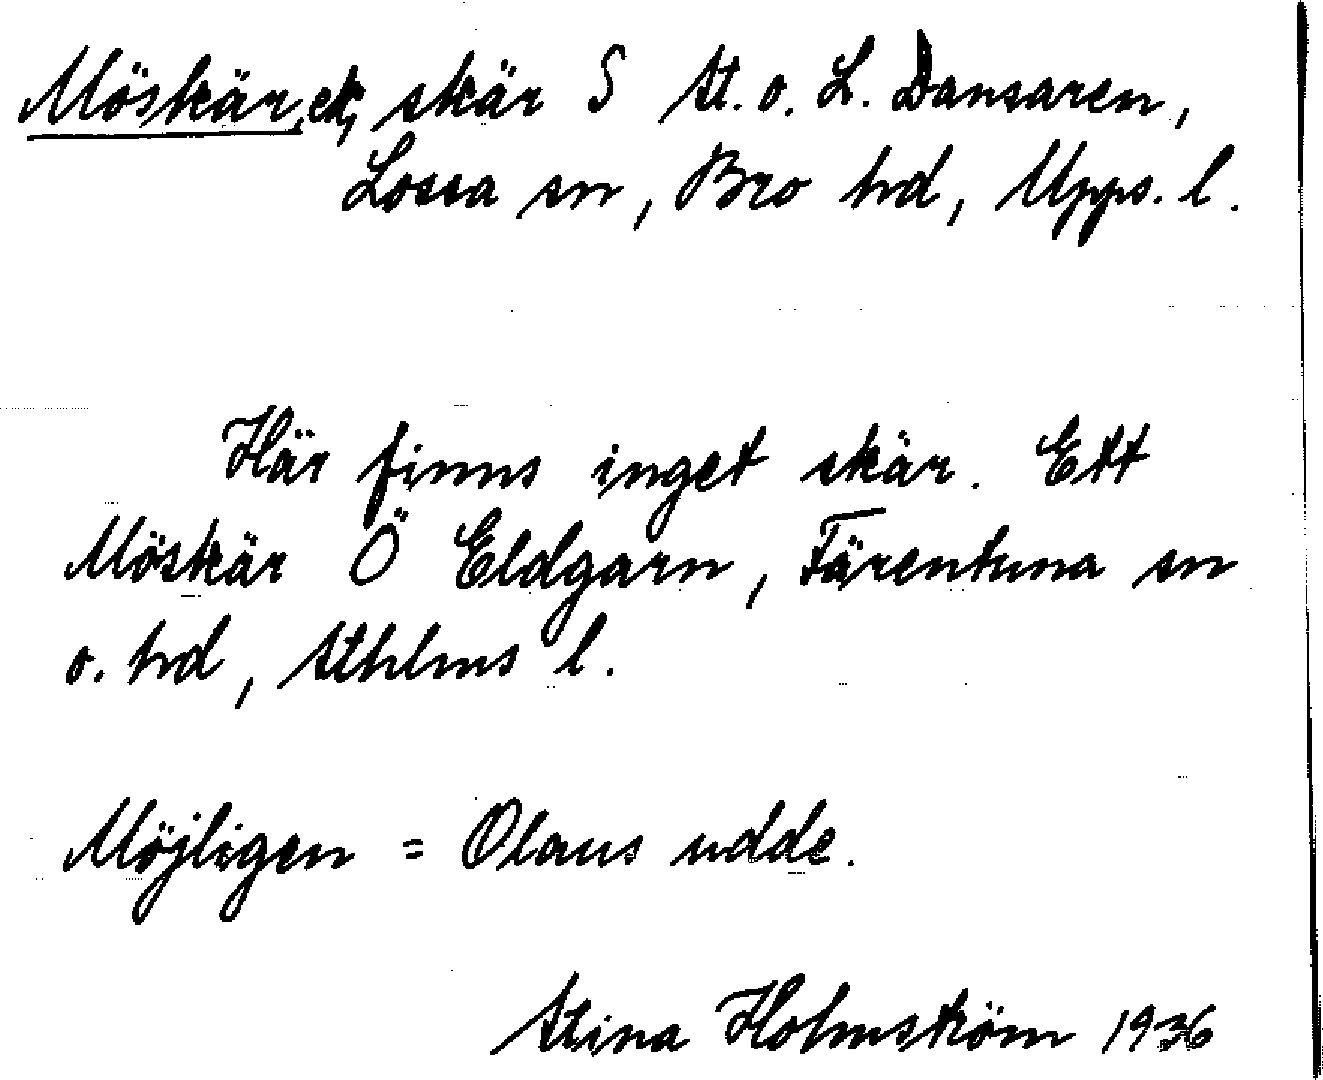 Möskär, ek, skär S St. o. L. Dansaren,
Lossa sn, Bro hd, Upps. l.
Här finns inget skär. Ett
Möskär Ö Eldgarn, Färentuna sn
o. hd, Sthlms l.
Möjligen = Olaus udde.
Stina Holmström 1936